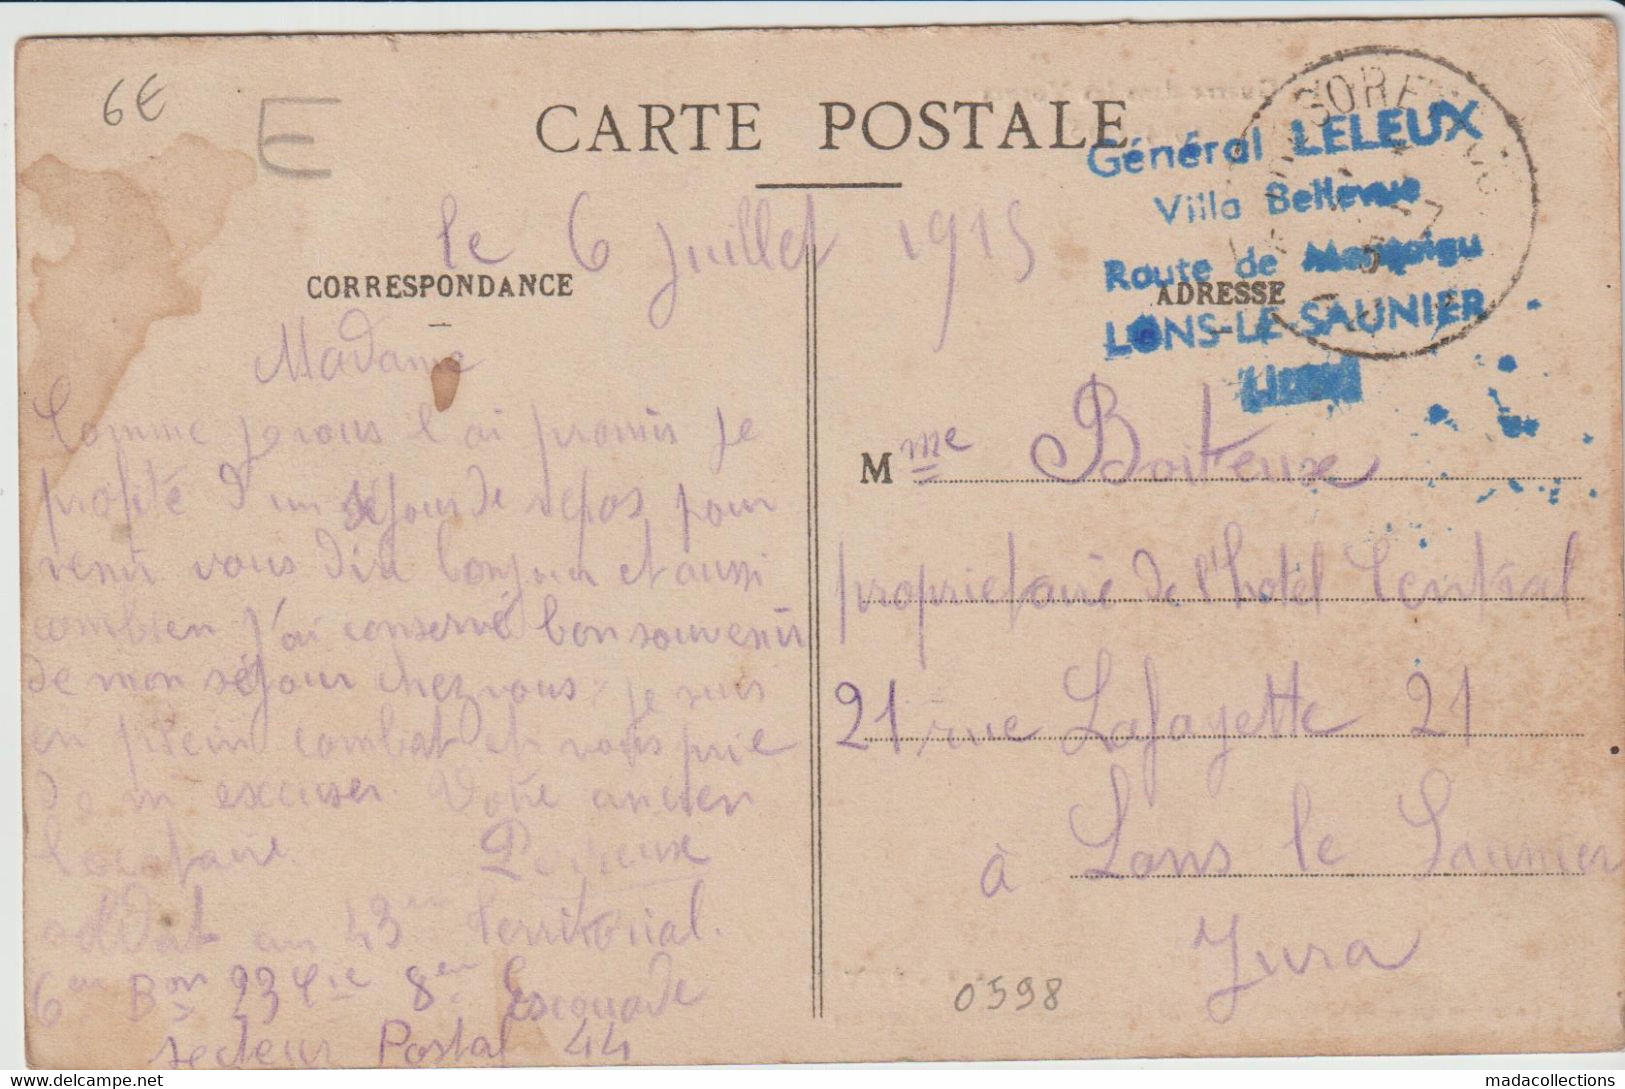 6€
E
CARTE POSTALE
Général LELEUX
Villa Bellevue
Route de Montaigu
LONS-LE-SAUNIER
le 6 Juillet 1915
CORRESPONDANCE
ADRESSE
Madame
Comme je vous l'ai promis je
profite d'un séjour de repos pour
venir vous dire bonjour et aussi
combien j'ai conservé bon souvenir
de mon séjour chez vous, je suis
en plein combat et vous prie
de m'excuser. Votre ancien
locataire
soldat au 43en Territorial.
6en Bon 23 Cie 8en Escouade
secteur Postal 44
Mme Boiteux
propriétaire de l'hotel Central
21 rue Lafayette 21
à Lons le Saunier
Jura
0598
madacollections